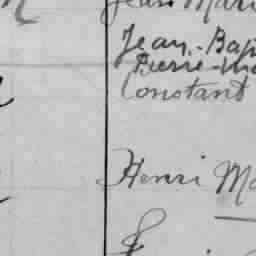 Jean Mari
Jean-Bap
Pierre-Ma
Constant
Henri Ma